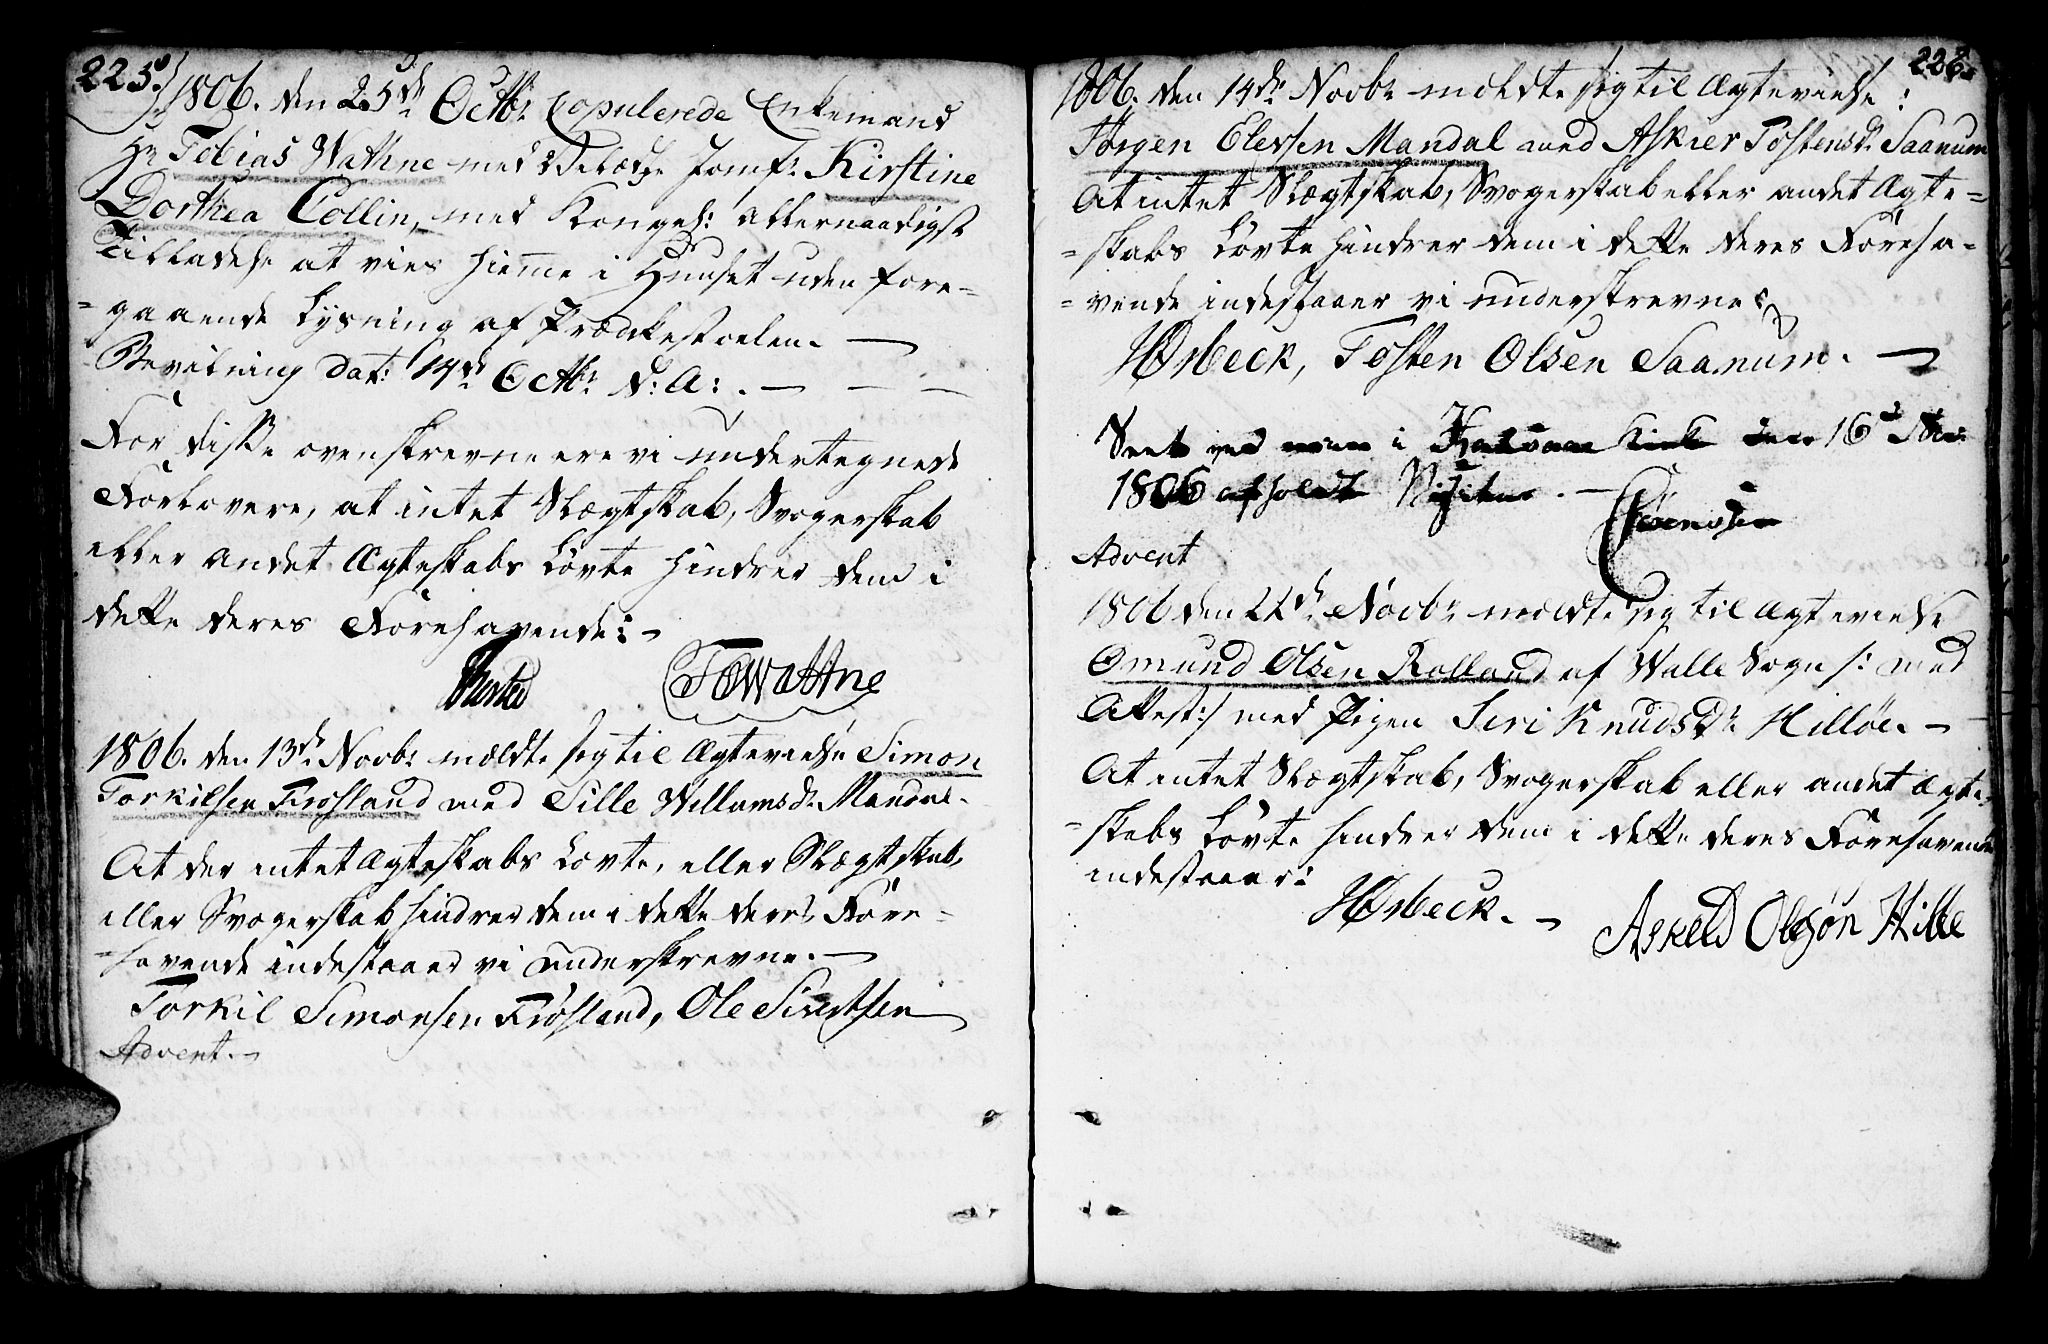 225.
1806. den 25de Octbr Copulerede Enkemand
Hr Tobias Wathne med Velædle Jomfr: Kirstine
Dorthea Collin, med Kongel: allernaadigst
Tilladelse at vies hiemme i Huuset uden fore-
=gaaende Lysning af Prædikestoelen. —
Bevilning Dat: 14de Octbr N: A: . — — —
For disse ovenskrevne ere vi undertegnede
Forlovere, at intet Slægtskab, Svogerskab
eller andet Ægteskabs Løvte hindrer dem i
dette deres Forehavende: -
TO Wattne
1806. den 13de Novbr mældte sig til Ægtevielse Simon
Torkilsen Frøsland med Sille Willumsdr Mandal.
At der intet Ægteskabs Løvte, eller Slægtskab,
eller Svogerskab hindrer dem i dette deres Fore-
=havende indestaaer vi underskrevne. —
Torkil Simonsen Frøsland, Ole Sivertsen
Advent. -
226.
1806. den 14de Novbr mældte sig til Ægtevielse:
Jørgen Elevsen Mandal med Askier Tostensdr Saanum
At intet Slægtskab, Svogerskab eller andet Ægte=
=skabs Løvte hindrer dem i dette deres Foreha-
=vende indestaaer vi underskrevne:
HØrbeck, Tosten Olsen Saanum. —
Seet ved min i Halsaae Kirke den 16d Nov:
1806 afholdte Visitas. —
Advent
1806 den 22de Novbr mældte sig til Ægtevielse
Omund Olsen Rolland af Walle Sogn /: med
Attest:/ med Pigen Siri Knudsdr Hilløe. -
At intet Slægtskab, Svogerskab eller andet Ægte
=skabs Løvte hindrer dem i dette deres Forehavende
indestaaer:
HØrbeck. - Askeld Olsøn Hille